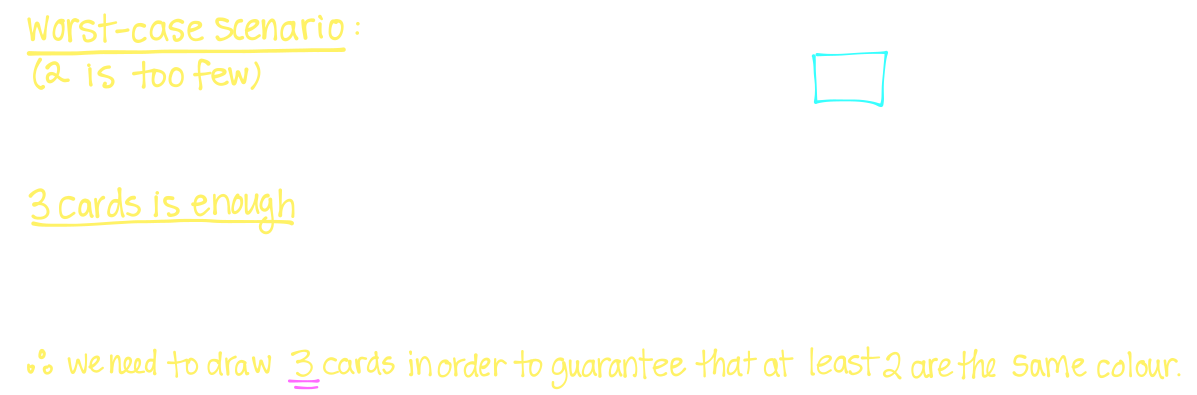 Worst-case scenario:
(2 is too few)
3 cards is enough
∴ we need to draw 3 cards in order to guarantee that at least 2 are the same colour.